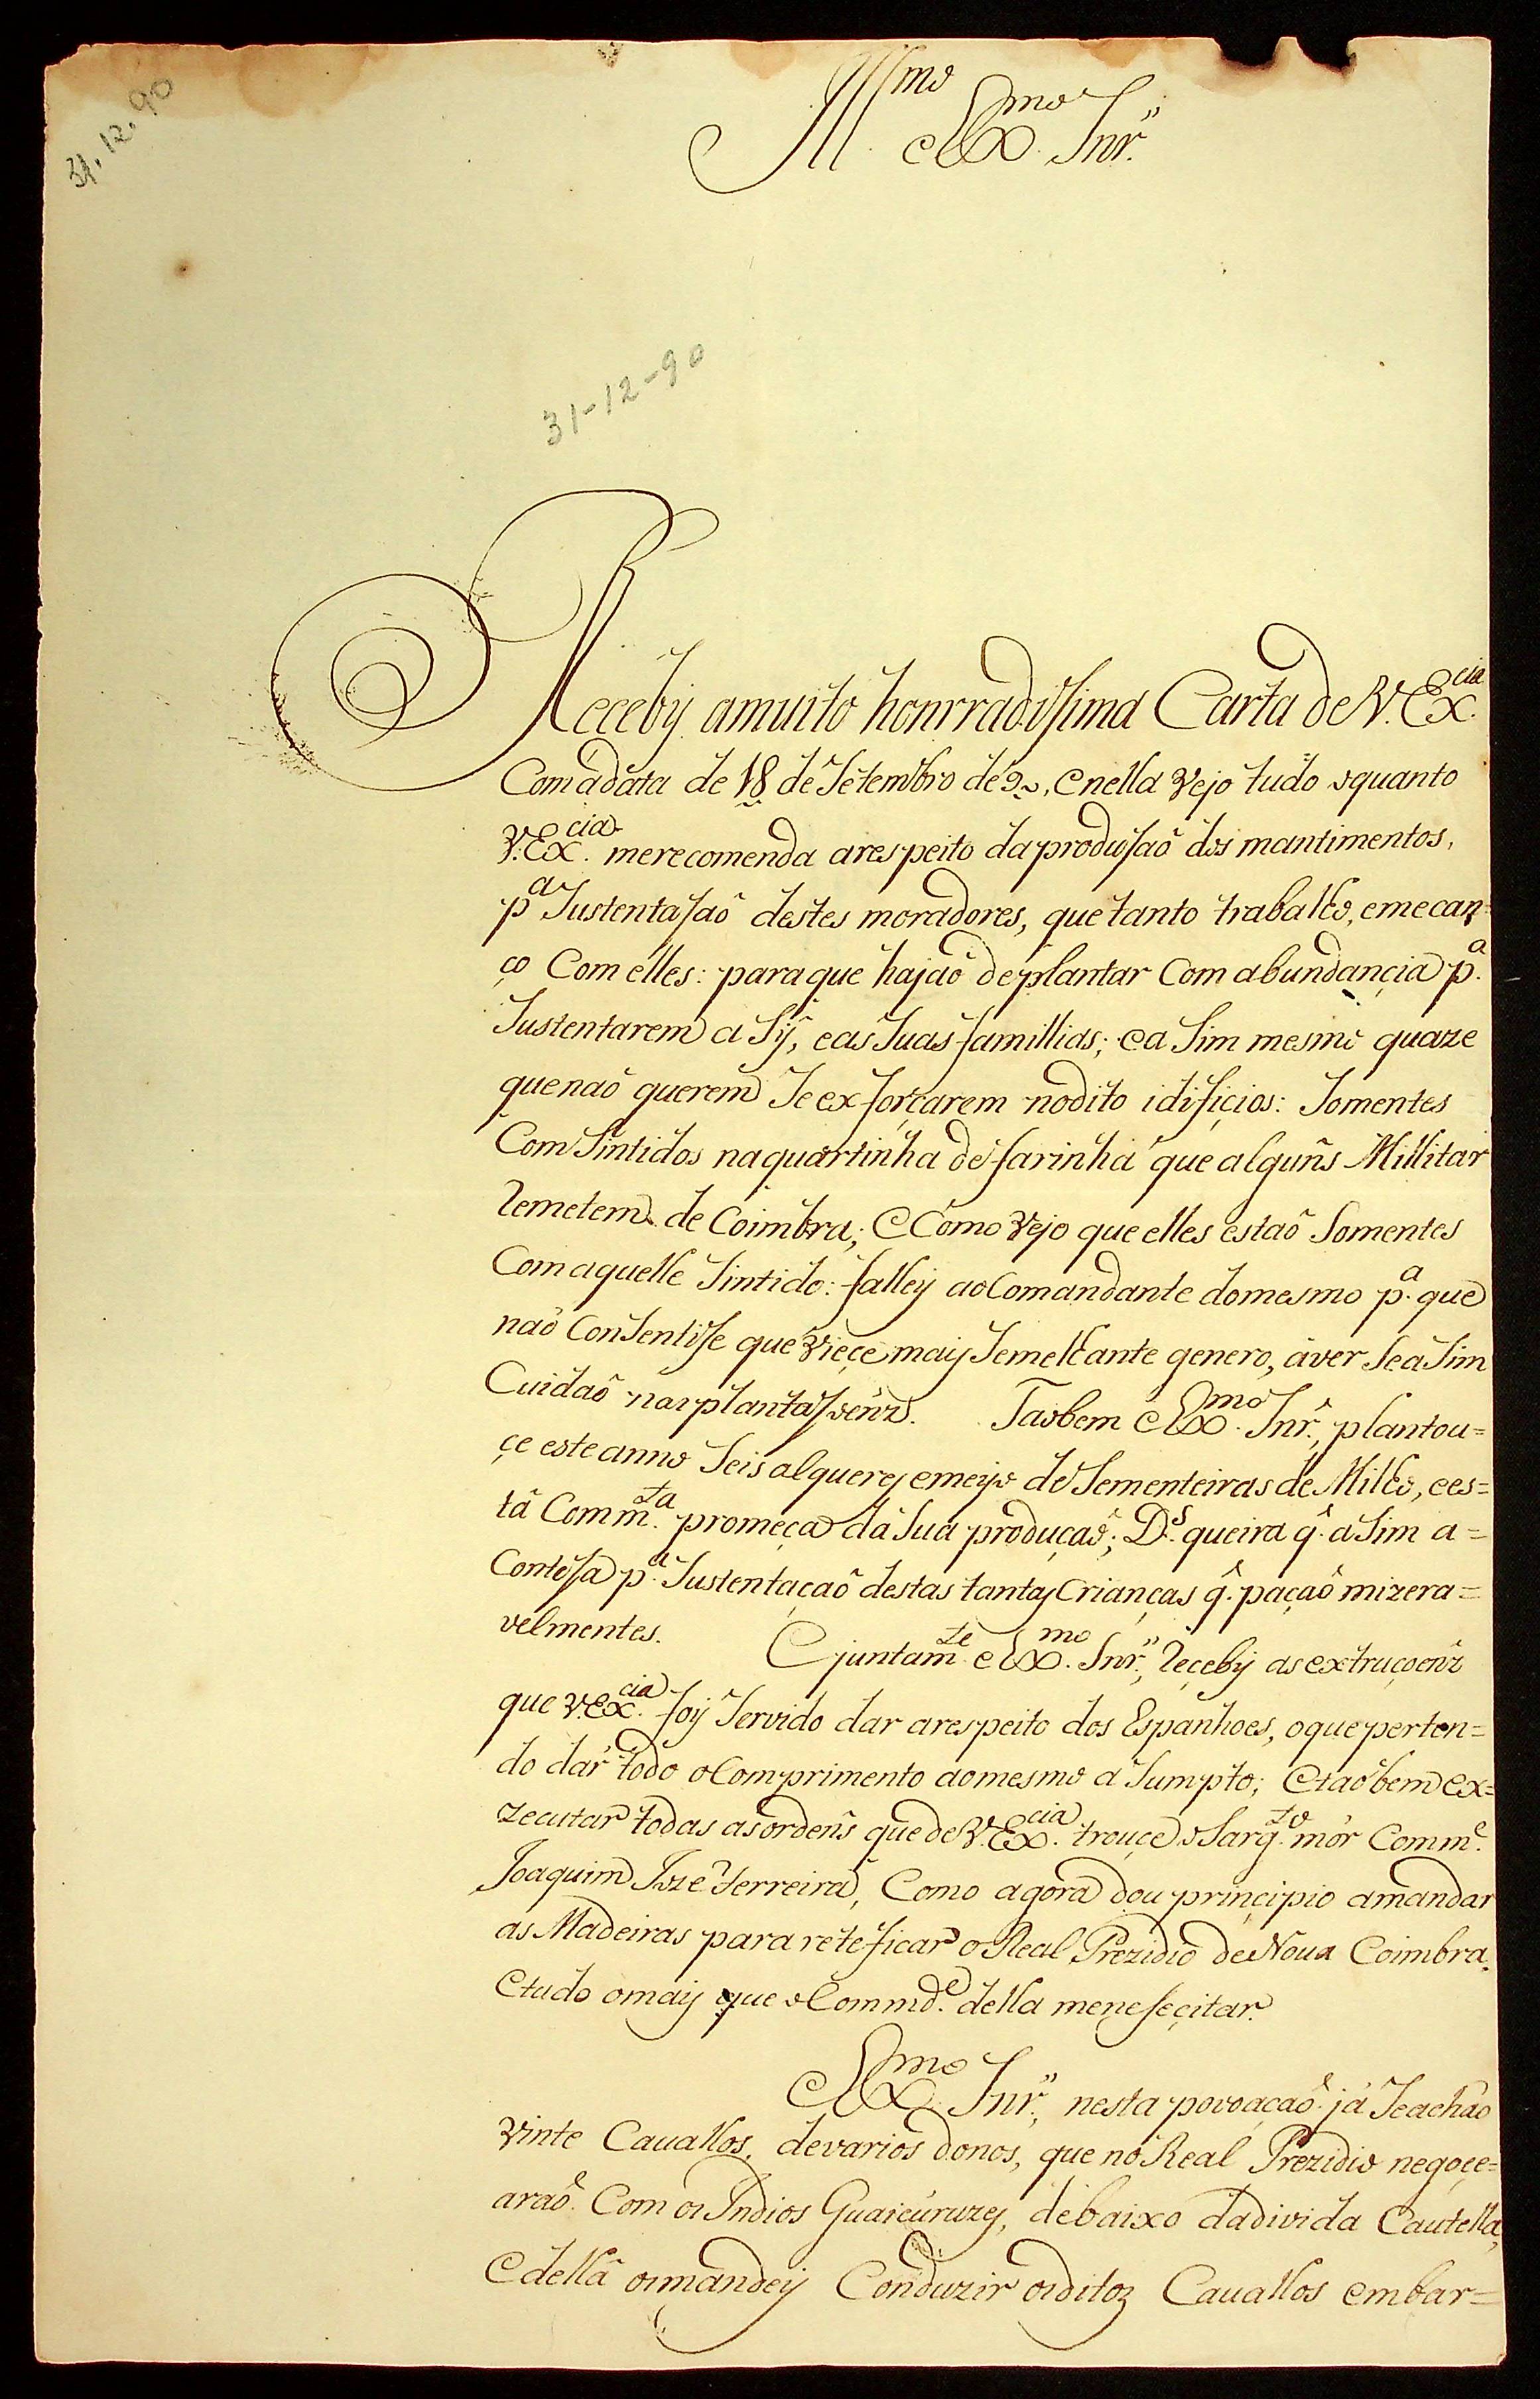 31.12.90
Ill.mo e Ex.mo Snr.
31-12-90
Receby amuito honrradissima Carta de V. Ex.cia
Com adata de 18 de Setembro de 90, e nella vejo tudo oquanto
V. Ex.cia merecomenda arespeito daprodusaõ dos mantimentos,
p.a Sustentasaõ destes moradores, que tanto trabalho, emecan=
ço Com elles: paraque hajaõ deplantar Com abundançia p.a
Sustentarem a Sy, eas Suas famillias; ea Sim mesmo quaze
quenaõ querem Se exforçarem nodito idifiçios: Somentes
Com Sintidos naquartinha de farinha que alguñs Millitar
Remetem de Coimbra; e Como vejo que elles estaõ Somentes
Com aquelle Sintido: falley ao Comandante domesmo p.a que
naõ Consentise que vieçe mays Semelhante genero, áver Se a Sim
Cuidaõ nas plantasoenz. Taobem Ex.mo Snr., plantou=
çe este anno Seis alquerez emeyo de Sementeiras de Milho, ees=
tá Com m.ta promeça da Sua produçaõ; D.s queira q. a Sim a=
Contesa p.a Sustentaçaõ destas tantas Crianças q. paçaõ mizera=
velmentes. E juntam.te Ex.mo Snr., Reçeby as extruçoenz
que V. Ex.cia foy Servido dar arespeito dos Espanhoes, oque perten=
do dár todo o Comprimento aomesmo a Sumpto; E taõ bem ex=
zecutar todas as ordeñs que de V. Ex.cia trouçe o Sarg.to mór Comm.e
Joaquim Joze Ferreira, Como agora dou prinçipio amandar
as Madeiras para reteficar o Real Prezidio de Nova Coimbra,
E tudo omay que o Commd.e della meneseçitar.
Ex.mo Snr., nesta povoaçaõ já Se achaõ
vinte Cavallos, de varios donos, que no Real Prezidio negoçe=
araõ Com os Indios Guaicuruzes, debaixo dadivida Cautella,
E dellá os mandey Conduzir os ditoz Cavallos embar=